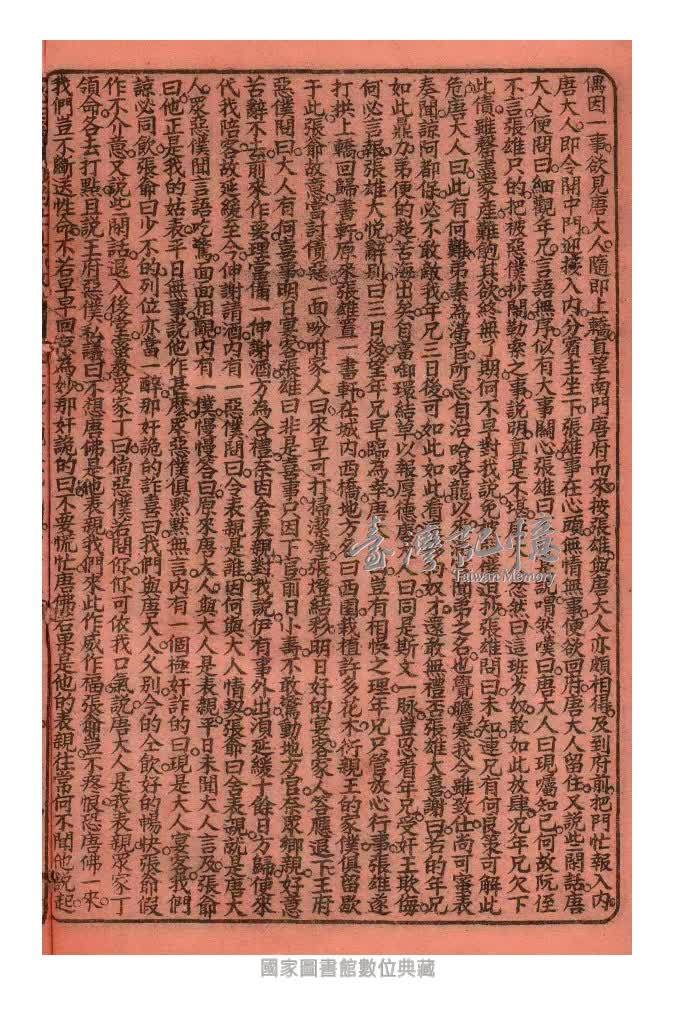 偶因一事欲見唐大人隨即上轎直望南門唐府而來按張雄與唐大人亦頗相得及到府前把門忙報入內
唐大人即令開中門迎接入內分賓主坐下張雄事在心頭無情無事便欲回府唐大人留住又說些閑話唐
大人便問曰細觀年兄言語無序似有大事關心張雄曰 說喟然嘆曰唐大人曰現囑知己何故阮徃
不言張雄只的把被惡僕抄鬧勒索之事說明真是不 忽然曰這班劣奴敢如此放肆况年兄欠下
此債雖罄盡家產難飽其欲終無了期何不早對我說免被 僕追抄張雄問曰未知連兄有何良策可解此
危唐大人曰此有何難弟素為滿官所忌自治哈咯龍以來 聞弟之名也覺膽寒我今雖致仕尚可密表
奏聞諒阿都保必不敢敵我年兄三日後可如此如此看 奴才還敢無禮否張雄大喜謝曰若的年兄
如此鼎力弟便的超苦海出矣自當啣環結草以報厚德唐 人曰同是斯文一脉豈忍看年兄受奸王欺侮
何必言報張雄大悅辭別曰三日後望年兄早臨為幸唐 豈有相悞之理年兄只管放心行事張雄遂
打拱上轎回歸書軒原來張雄置一書軒在城內西橋地方名曰西園栽植許多花木衍親王的家僕俱留歇
于此張爺故意當討債惡一面吩咐家人曰來早可打掃潔淨張燈結彩明日好的宴客家人答應退下王府
惡僕問曰大人有何喜事明日宴客張雄曰非是喜事只因下官前日小壽不敢驚動地方官奈眾鄉親好意
苦辭不去前來作慶理當備一伸謝酒方為合禮奈因舍表親對我說伊有事外出須延緩十餘日方歸便來
代我陪客故延緩至今伸謝請酒內有一惡僕問曰令表親是誰因何與大人情契張爺曰舍表親就是唐大
人眾惡僕聞言語吃驚面面相覷內有一僕慢慢答曰原來唐大人與大人是表親平日未聞大人言及張爺
曰他正是我的姑表平日無事說他作甚麼眾惡僕俱默默無言內有一個極奸詐的曰現是大人宴客我們
諒必同飲張爺曰少不的列位亦當一醉那奸詭的詐喜曰我們與唐大人久別今的仝飲好的暢快張爺假
作不介意又說些閑話退入後堂密教眾家丁曰倘惡僕若問你你可依我口氣說唐大人是我表親眾家丁
領命各去打點且說王府惡僕私議曰不想唐佛是他表親我們來此作威作福張爺豈不疼恨恐唐佛一來
我們豈不斷送性命不若早早回京為妙那奸詭的曰不要慌忙唐佛若果是他的表親往常何不聞他說起
臺灣記憶
Taiwan Memory
國家圖書館數位典藏